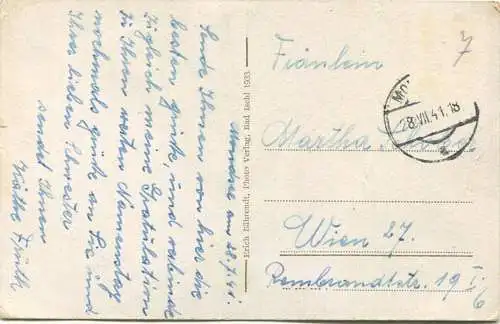 Mondsee am 28.7.41.
Sende Ihnen von hier die
besten Grüße, und verbinde
zugleich meine Gratulation
zu Ihren werten Namenstag
nochmals Grüße an Sie und
Ihrer lieben Schwester
sendet Ihnen
Erich Bährendt, Photo Verlag, Bad Ischl 1933
7
Fräulein
28.VII.41.18
Martha
Wien 27.
Rembrandtstr. 19 I/6